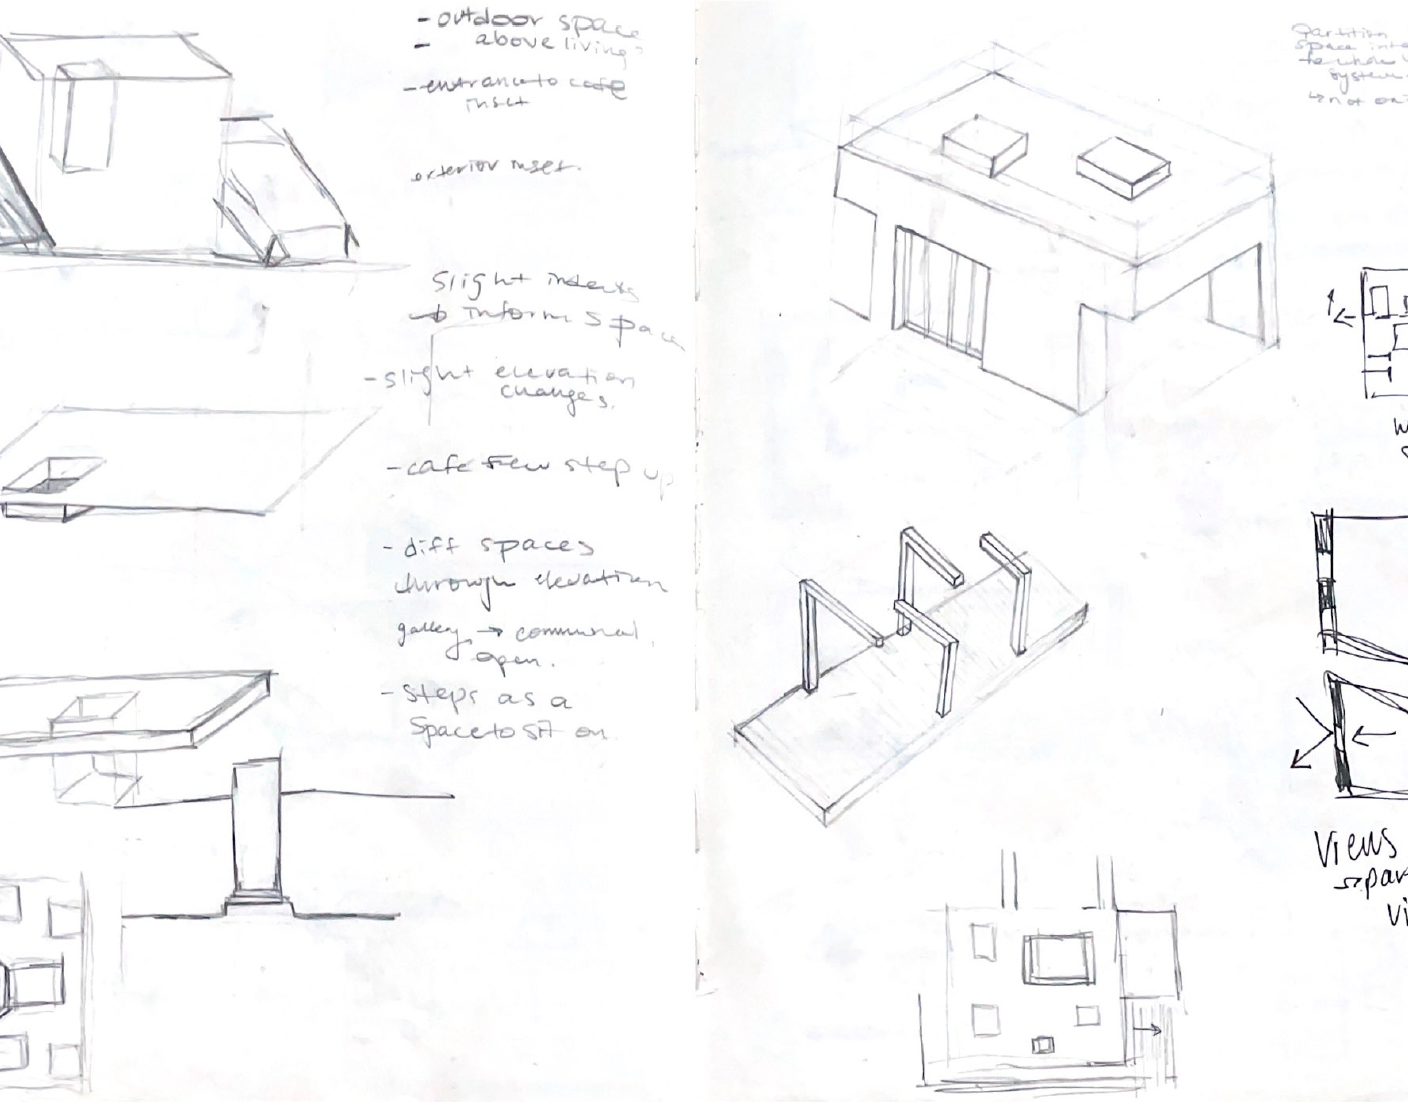 - outdoor space
- above living?
- entrance to cafe
inset
exterior inset.
slight indents
→ inform space
- slight elevation
changes.
- cafe few step up
- diff spaces
through elevation
gallery → communal,
open.
- steps as a
space to sit on.
partition
space into
system
↳ not
Views